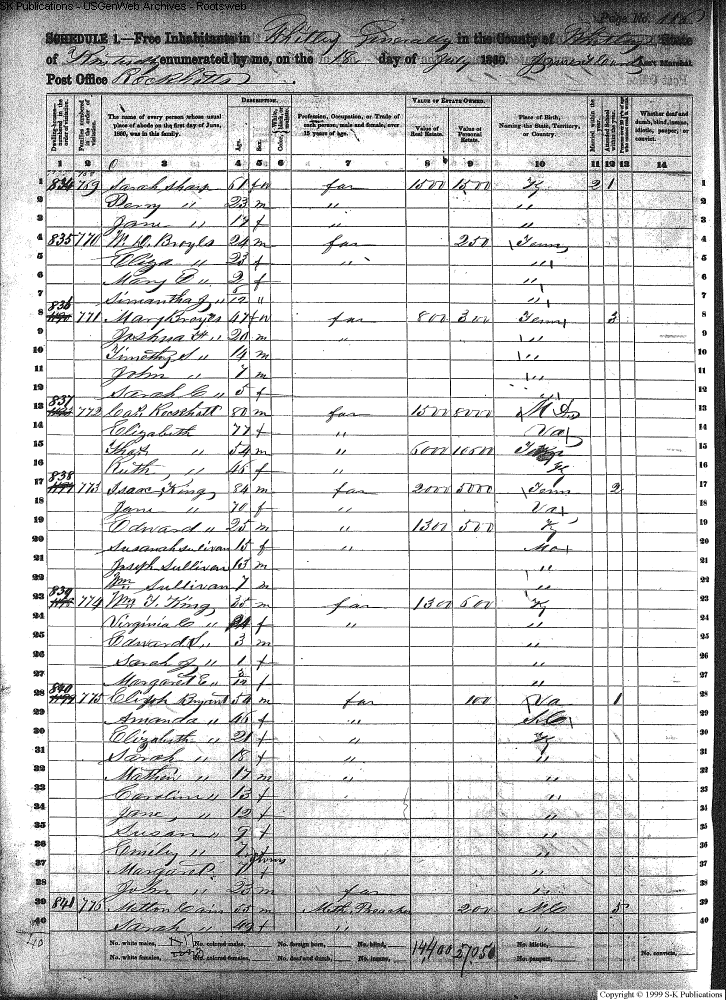 S-K Publications - USGenWeb Archives - Rootsweb
Page No.
SCHEDULE 1.—Free Inhabitants in Whitley Generally in the County of Whitley State
of Kentucky enumerated by me, on the 18 day of July 1860. Ass't Marshal.
Post Office Rockholts
Dwelling-houses numbered in the order of visitation. Families numbered in the order of visitation. The name of every person whose usual place of abode on the first day of June, 1860, was in this family. DESCRIPTION. Age. Sex. Color, Profession, Occupation, or Trade of each person, male and female, over 15 years of age. VALUE OF ESTATE OWNED. Value of Real Estate. Value of Personal Estate. Place of Birth, Naming the State, Territory, or Country. Married within the year. Attended School within the year. Whether deaf and dumb, blind, insane, idiotic, pauper, or convict.
1 2 3 4 5 6 7 8 9 10 11 12 13 14
1 834 769 Sarah Sharp 61 f far 1500 1500 Ky 2 1 1
2 Perry " 23 m " " 2
3 Jane " 17 f " " 3
4 835 770 W. D. Broyls 24 m far 250 Tenn 4
5 Eliza " 23 f " " 5
6 Mary E " 2 f " 6
7 Simantha J " 5/12 " " 7
8 836 771 Mary Broyls 47 f far 800 300 Tenn 3 8
9 Joshua H " 20 m " " 9
10 Timothy S " 14 m " 10
11 John " 7 m " 11
12 Sarah C " 5 f " 12
13 837 772 Rockholt 80 m far 1500 8000 13
14 Elizabeth 77 f " Va 14
15 " 54 m " 6000 15
16 Ruth " 46 f " Ky 16
17 838 773 Isaac King 84 m far 2000 5000 Tenn 2 17
18 Jane " 70 f " Va 18
19 Edward " 25 m " 1300 500 Ky 19
20 Susanah Sulivan 15 f " Mo 20
21 Joseph Sullivan 13 m " 21
22 Wm Sullivan 7 m " 22
23 839 774 Wm T. King 35 m far 1300 600 Ky 23
24 Virginia C " 24 f " " 24
25 Edward S " 3 m " 25
26 Sarah J " 1 f " 26
27 Margaret E " 3/12 f " 27
28 840 775 Elijah Bryant 54 m far 100 Va 1 28
29 Amanda " 46 f " 29
30 Elizabeth " 21 f " Ky 30
31 Sarah " 18 f " " 31
32 " 17 m " " 32
33 Carolin " 13 f " 33
34 Jane " 12 f " 34
35 Susan " 9 f " 35
36 Emily " 7 f " 36
37 Margaret " 7 f " 37
38 John " 23 m far " 38
39 841 776 Milton Cain 55 m Meth Preacher 200 N.C 5 39
40 Sarah " 49 f " " 40
No. white males, No. colored males, No. foreign born, No. blind, 14400 27050 No. idiotic,
No. white females, No. colored females, No. deaf and dumb, No. insane, No. paupers, No. convicts,
Copyright © 1999 S-K Publications